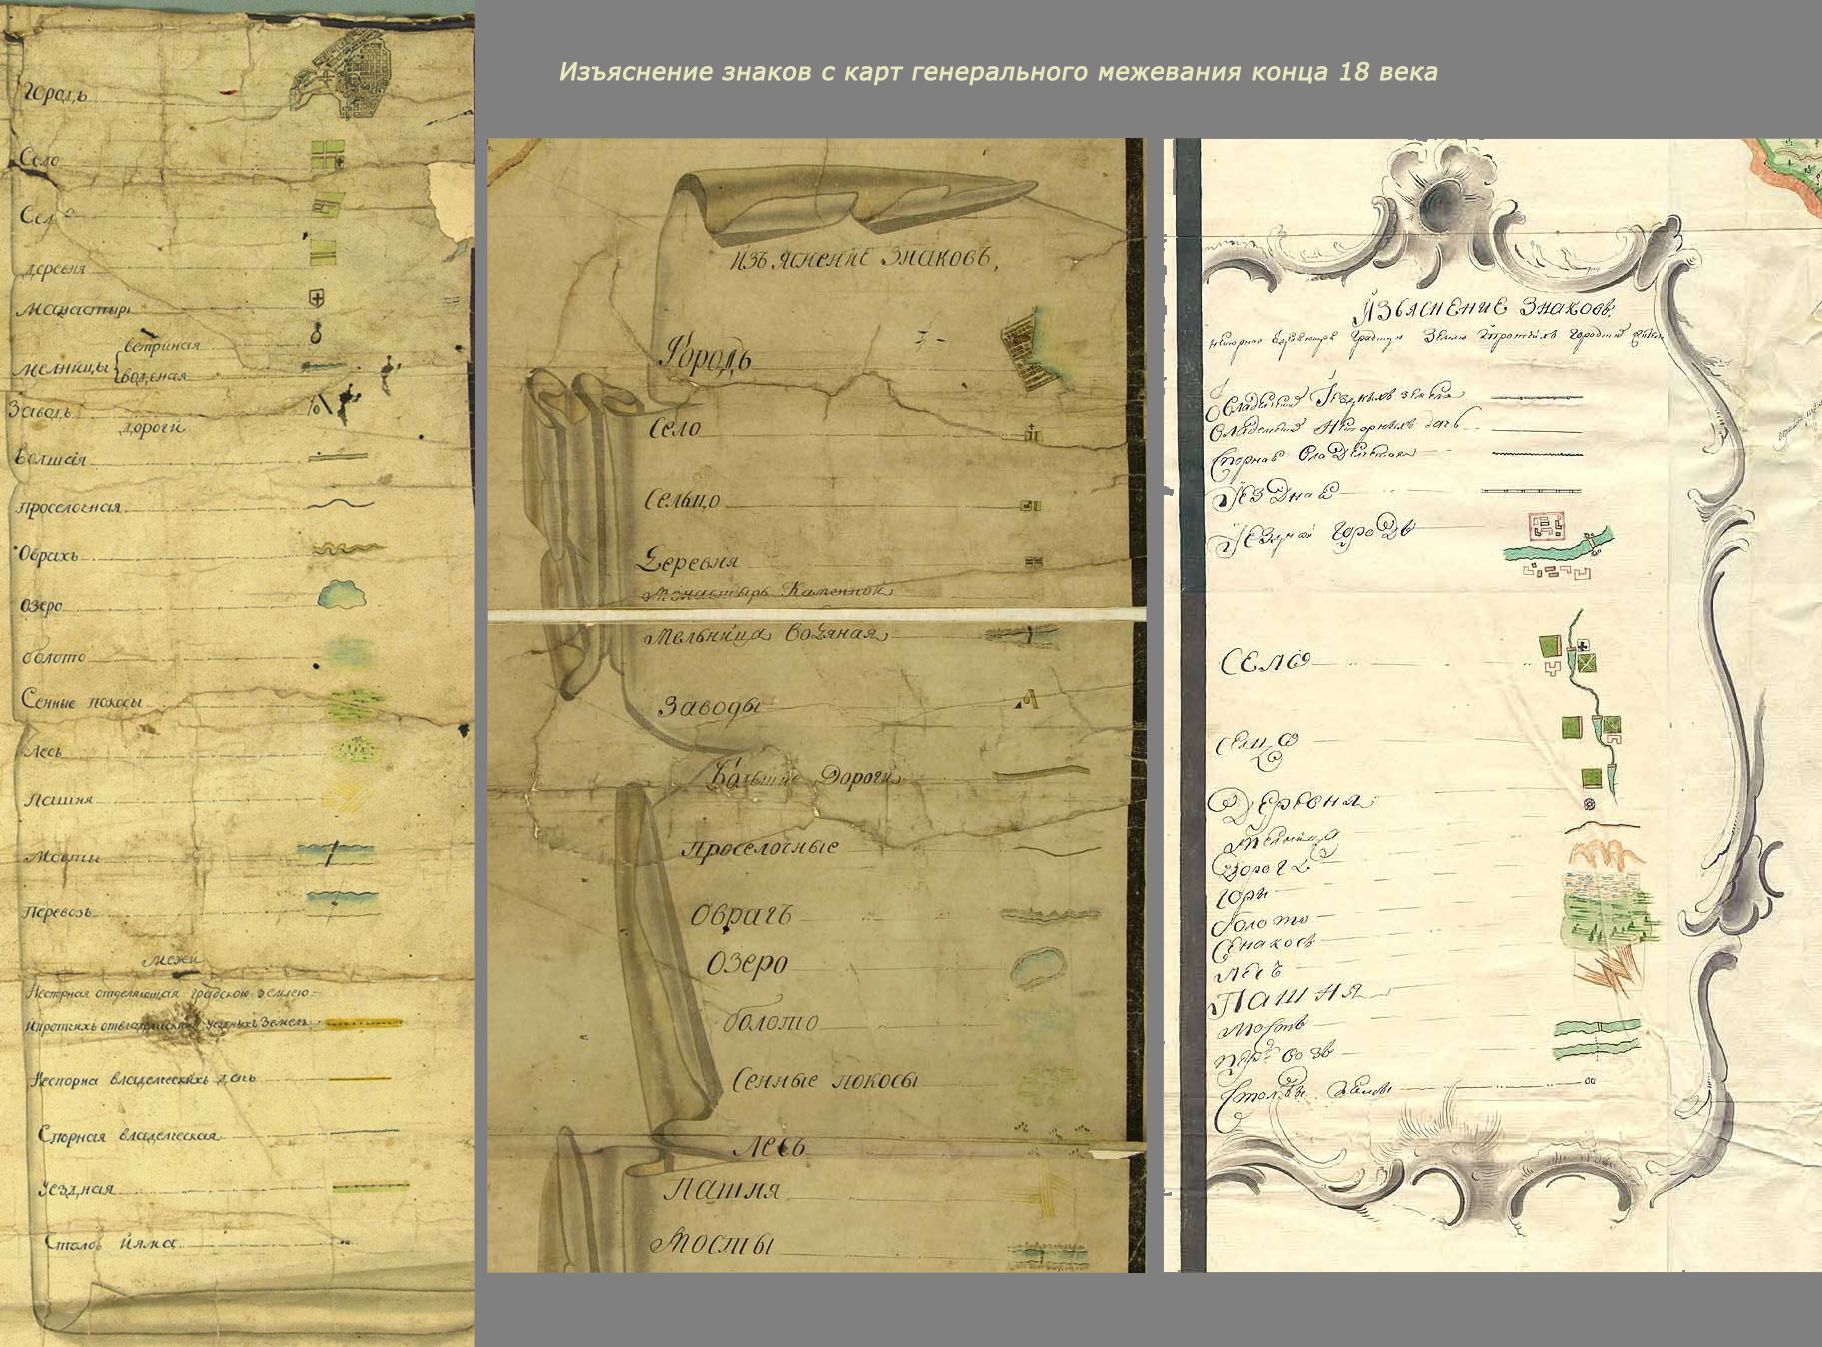 Изъяснение знаков с карт генерального межевания конца 18 века
Городъ
Село
Сел
деревня
Манастыри
ветриная
мелницы
воденая
Заводъ
дороги
болшая
проселочная
Оврахъ
озеро
болото
Сенные покосы
Лесъ
пашня
Мосты
Перевозъ
межи
Неспорная отделяющая градскою землею
Неспорна владелческихъ дачь
Спорная владелческая
Уездная
Столбъ ияма
изъяснение знаковъ,
Городъ
Село
Сельцо
Деревня
Монастырь Каменной
Мельница водяная
Заводы
Большие Дороги
проселочные
Оврагъ
Озеро
болото
Сенные покосы
Лесъ
Пашня
Мосты
Изъяснение Знаковъ.
Спорная владельческая
Уездная
Уездной городъ
Село
Селцо
Деревня
Мелница
Дорога
горы
болото
Сенакосъ
лесъ
Пашня
Мостъ
Столбы